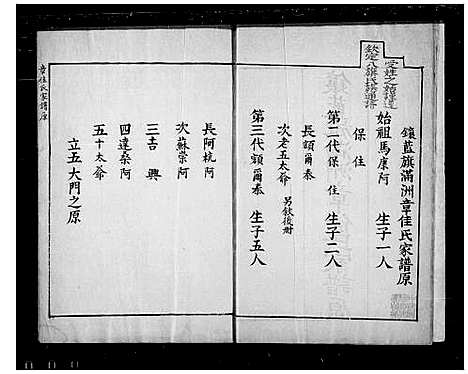 鑲藍旗滿洲章佳氏家譜原
始祖馬康阿 生子一人
保住
第二代保住 生子二人
長額爾泰
次老五太爺 另敘後附
第三代額爾泰 生子五人
長阿杭阿
次蘇崇阿
三吉興
四達桑阿
五十太爺
立五大門之原
章佳氏家譜原
欽定八旗氏族通譜